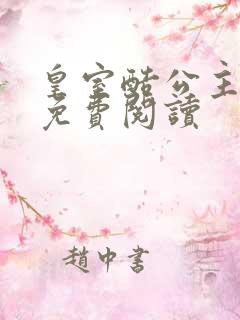 皇室酷公主
免費閱讀
趙中書